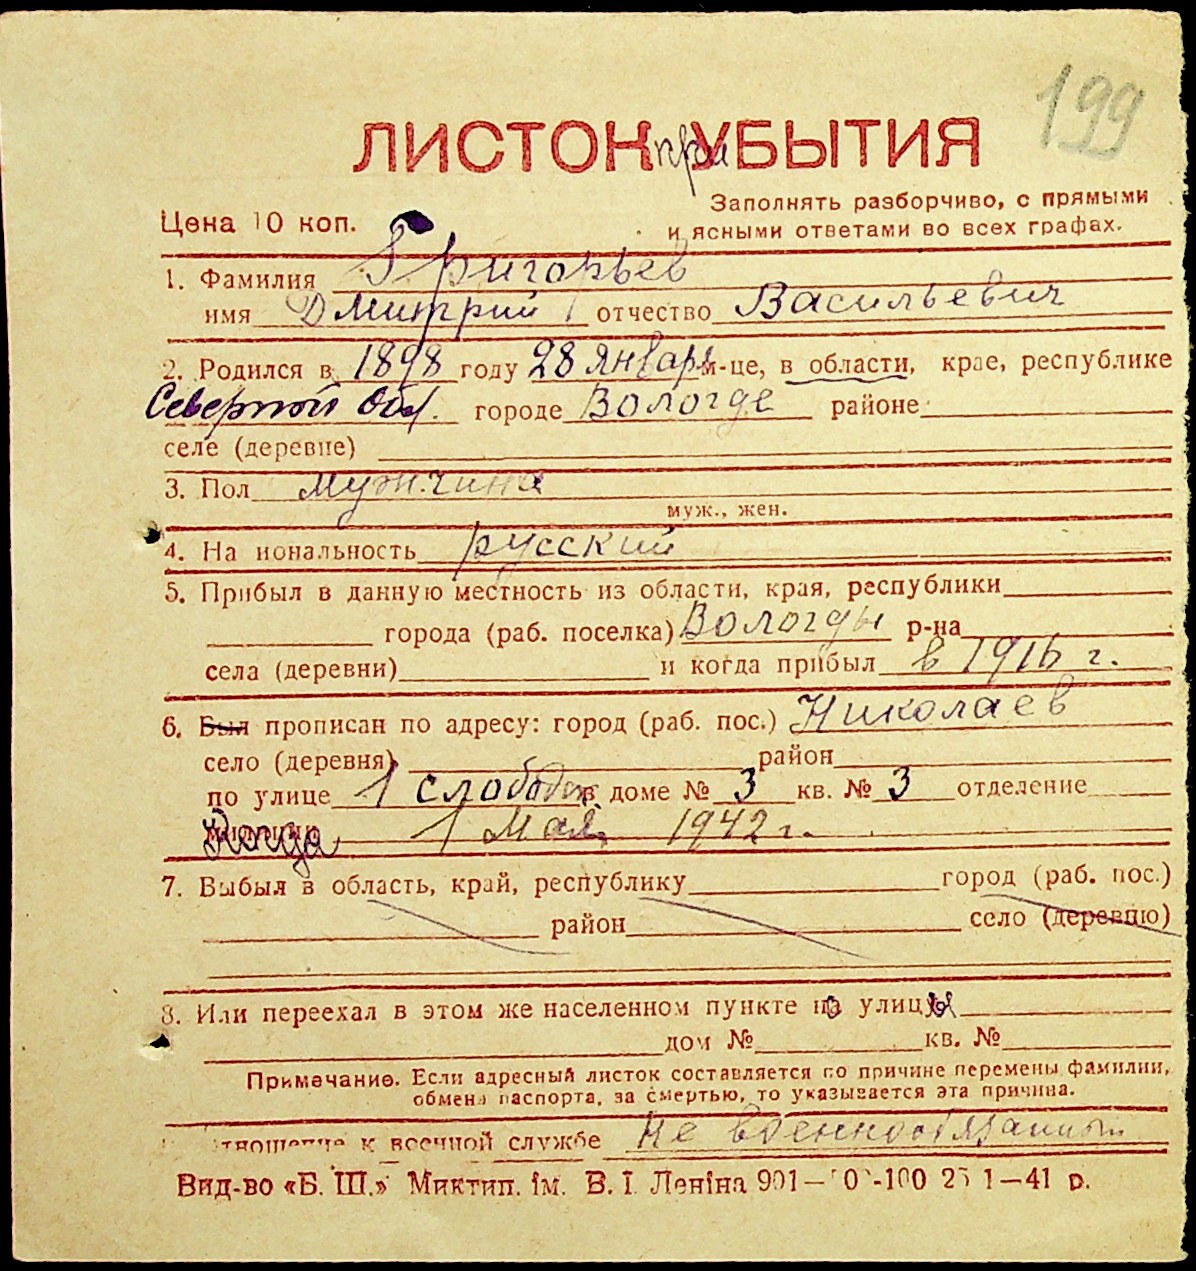 199
ЛИСТОК УБЫТИЯ
при
Цена 10 коп.
Заполнять разборчиво, с прямыми
и ясными ответами во всех графах.
1. Фамилия Григорьев
имя Дмитрий отчество Васильевич
2. Родился в 1898 году 28 января м-це, в области, крае, республике
Северной обл. городе Вологде районе
селе (деревне)
3. Пол мужчина
муж., жен.
4. На иональность русский
5. Прибыл в данную местность из области, края, республики
города (раб. поселка) Вологды р-на
села (деревни) и когда прибыл в 1916 г.
6. Был прописан по адресу: город (раб. пос.) Николаев
село (деревня) район
по улице 1 слободск. в доме № 3 кв. № 3 отделение
Когда 1 Мая 1942 г.
7. Выбыл в область, край, республику город (раб. пос.)
район село (деревню)
8. Или переехал в этом же населенном пункте по улицы
дом № кв. №
Примечание. Если адресный листок составляется по причине перемены фамилии,
обмена паспорта, за смертью, то указывается эта причина.
тношение к военной службе Не военнообязанный
Вид-во «Б. Ш.» Миктип. ім. В. І. Леніна 901— 0 -100 25 1—41 р.